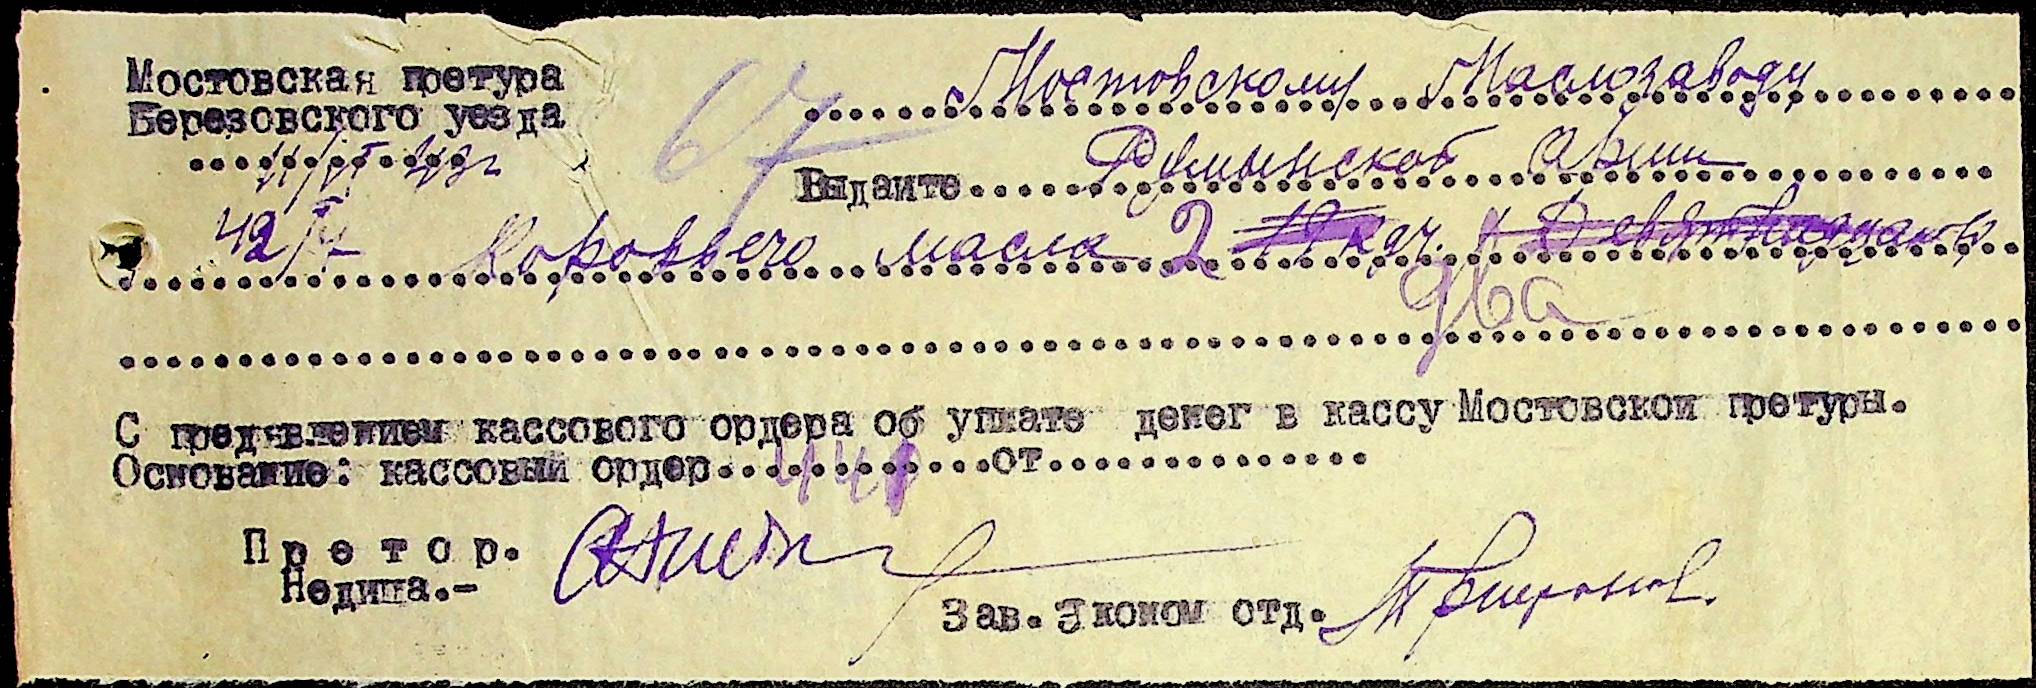 Мостовская претура
Березовского уезда
11/VI 43г
67
Мостовскому Маслозаводу
Выдайте Румынской
коровьего масла 2 19 кгр. Девятнадцать
два
С предявлением кассового ордера об уплате денег в кассу Мостовской претуры.
Основание: кассовый ордер от
Претор.
Недица.-
Зав. Эконом отд.